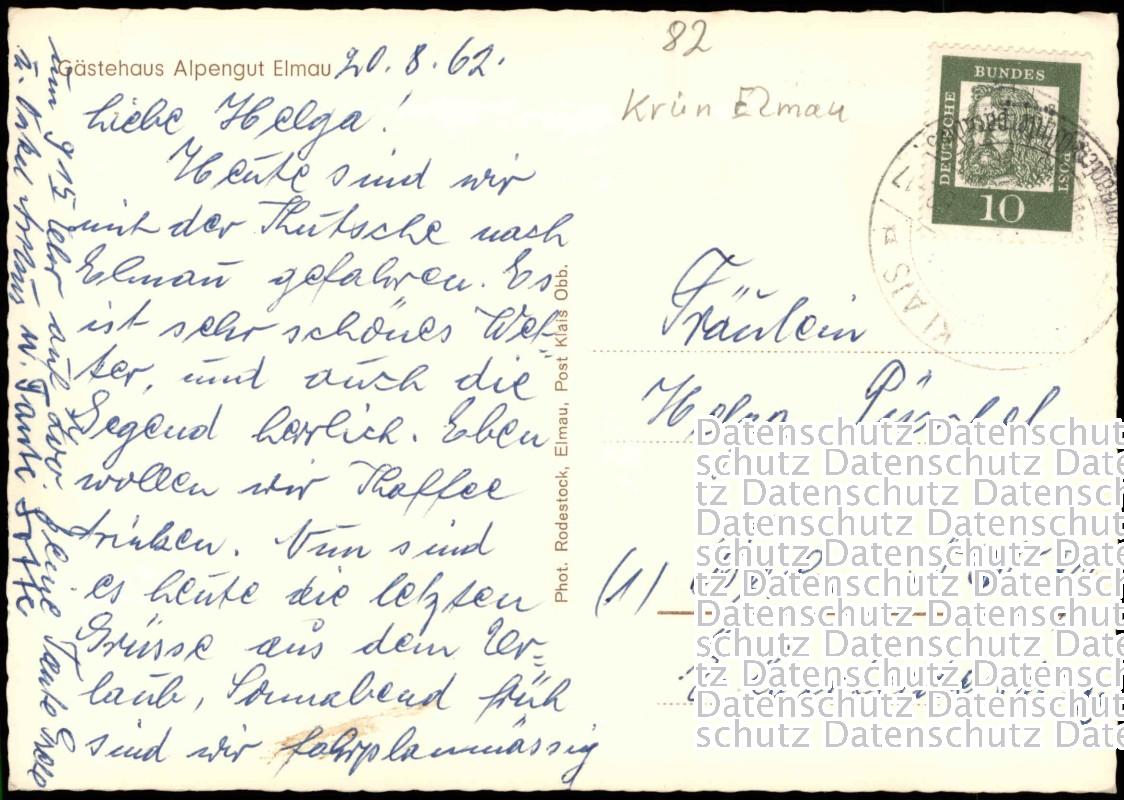 Gästehaus Alpengut Elmau 20.8.62.
Liebe Helga!
Heute sind wir
mit der Kutsche nach
Elmau gefahren. Es
ist sehr schönes Wet-
ter, und auch die
Gegend herrlich. Eben
wollen wir Kaffee
trinken. Nun sind
es heute die letzten
Grüsse aus dem Ur-
laub, Sonnabend früh
sind wir fahrplanmässig
um 9 15 Uhr auf dem
Deine Tante
u. Onkel w. Tante
Phot. Rodestock, Elmau, Post Klais Obb.
82
Krün Elmau
DEUTSCHE
BUNDES
POST
10
KLAIS
Fräulein
(1)
Datenschutz Datenschut
schutz Datenschutz Date
tz Datenschutz Datensch
Datenschutz Datenschut
schutz Datenschutz Date
tz Datenschutz Datensch
Datenschutz Datenschut
schutz Datenschutz Date
tz Datenschutz Datensch
Datenschutz Datenschut
schutz Datenschutz Date